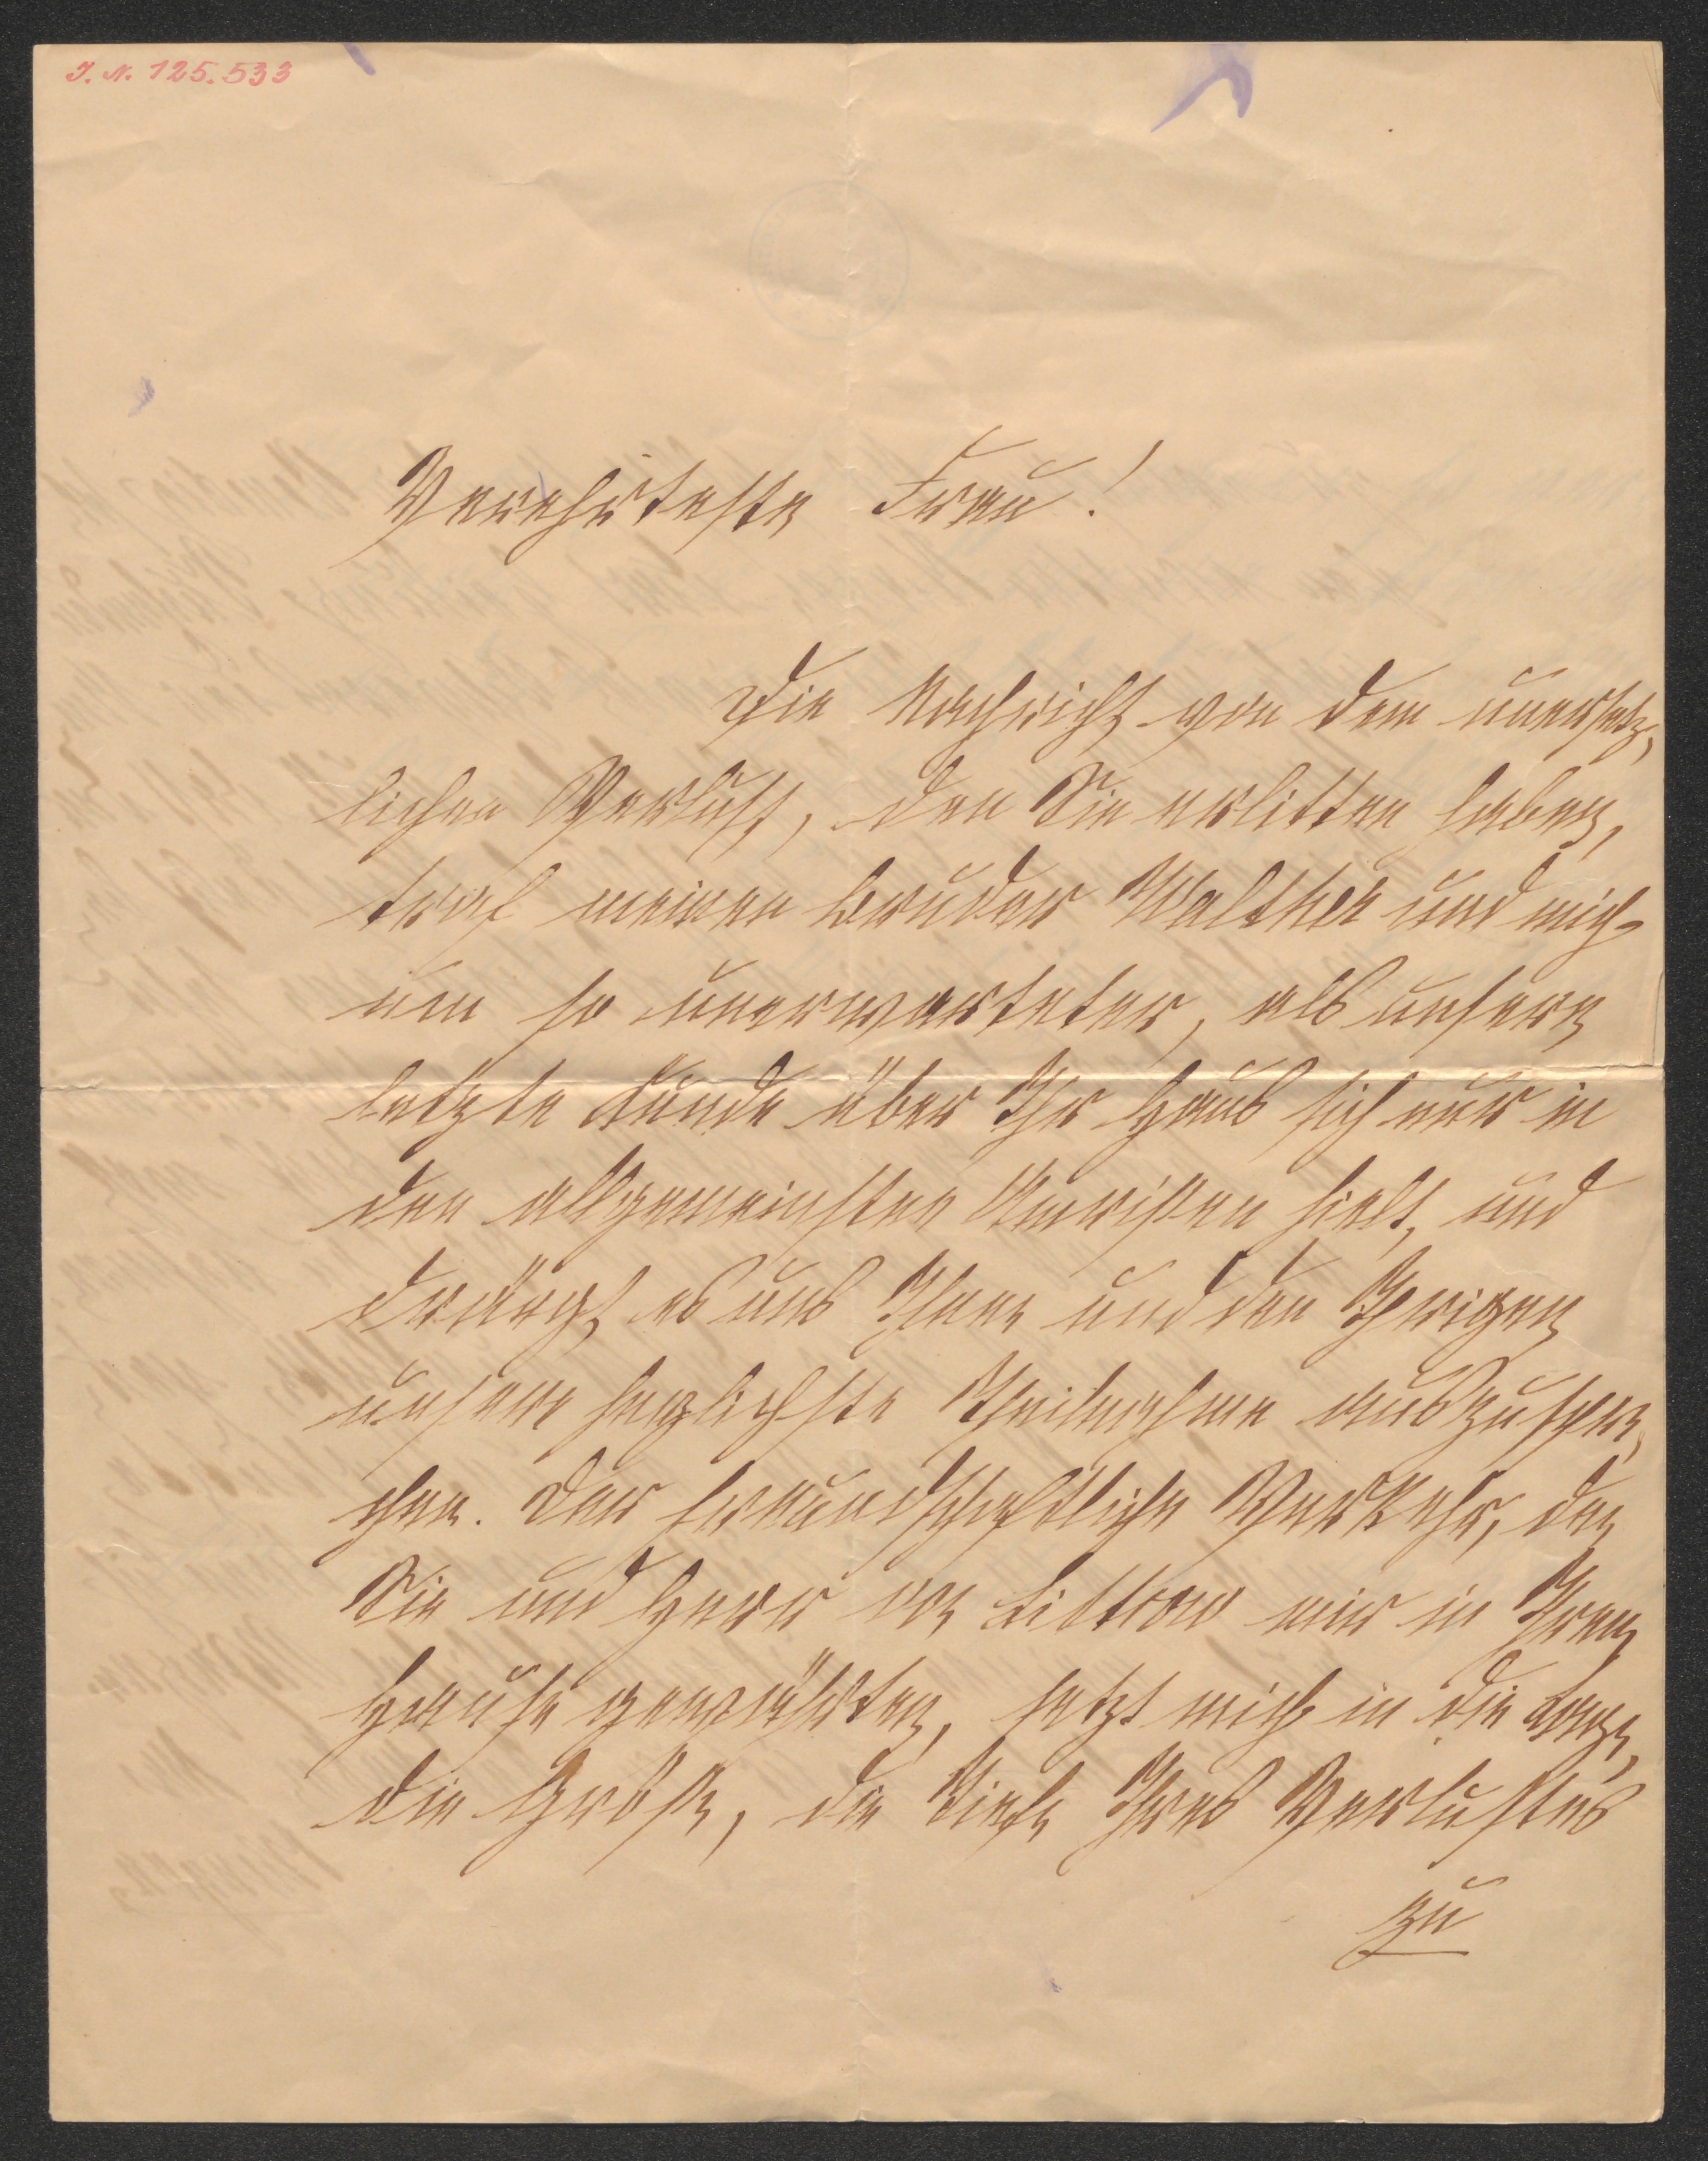 J. N. 125.533
Verehrteste Frau!
Die Nachricht von dem unersetz-
lichen Verlust, den Sie erlitten haben,
traf meinen Bruder Walther und mich
um so unerwarteter, als unsere
letzte Kunde über Ihr Haus sich nur in
den allgemeinsten Umrißen hielt, und
drängt es uns Ihnen und den Ihrigen
unsere herzlichste Theilnahme auszuspre-
chen. Der freundschaftliche Verkehr, den
Sie und Herr von Littrow mir in Ihrem
Hause gewährten, setzt mich in die Lage,
die Größe, die Tiefe Ihres Verlustes
zu